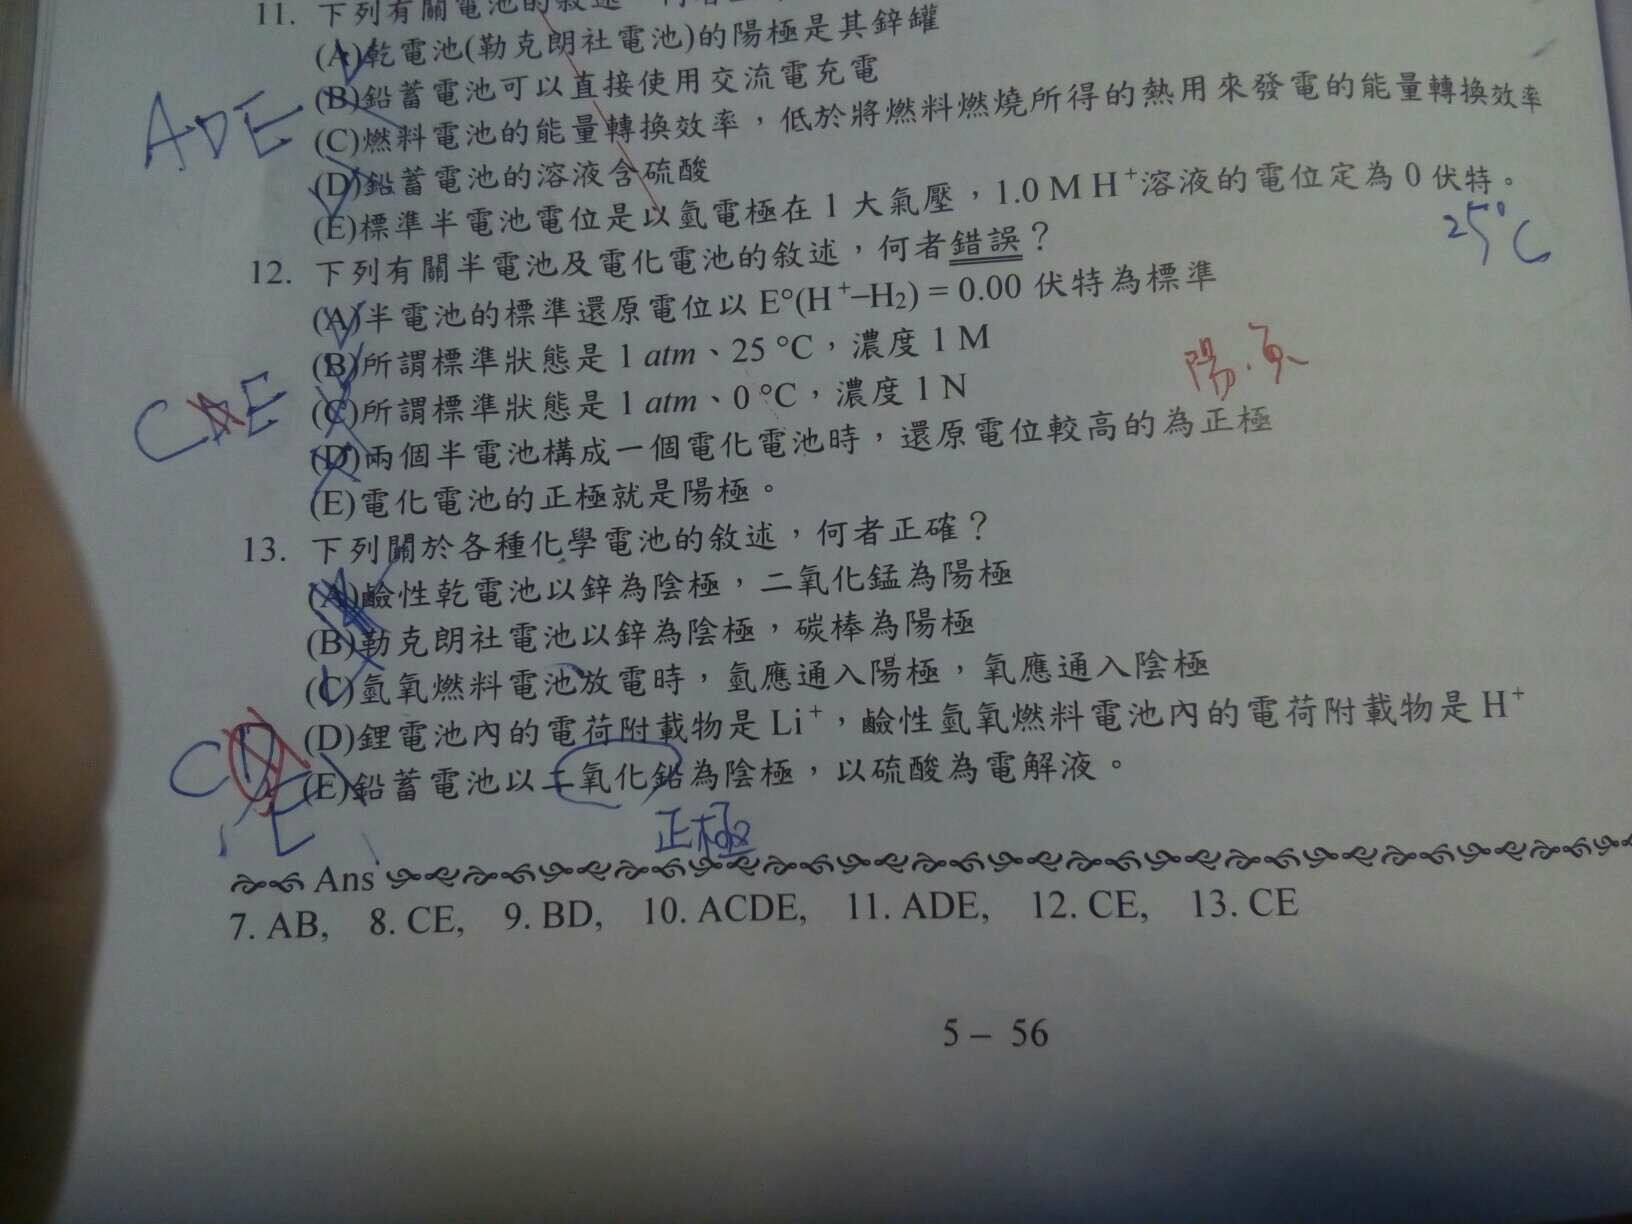 11. 下列有關電池的敘述
(A)乾電池(勒克朗社電池)的陽極是其鋅罐
(B)鉛蓄電池可以直接使用交流電充電
(C)燃料電池的能量轉換效率，低於將燃料燃燒所得的熱用來發電的能量轉換效率
(D)鉛蓄電池的溶液含硫酸
(E)標準半電池電位是以氫電極在 1 大氣壓，1.0 M H⁺溶液的電位定為 0 伏特。
ADE
25°C
12. 下列有關半電池及電化電池的敘述，何者錯誤？
(A)半電池的標準還原電位以 E°(H⁺–H₂) = 0.00 伏特為標準
(B)所謂標準狀態是 1 atm、25 °C，濃度 1 M
(C)所謂標準狀態是 1 atm、0 °C，濃度 1 N
(D)兩個半電池構成一個電化電池時，還原電位較高的為正極
(E)電化電池的正極就是陽極。
陽.負
13. 下列關於各種化學電池的敘述，何者正確？
(A)鹼性乾電池以鋅為陰極，二氧化錳為陽極
(B)勒克朗社電池以鋅為陰極，碳棒為陽極
(C)氫氧燃料電池放電時，氫應通入陽極，氧應通入陰極
(D)鋰電池內的電荷附載物是 Li⁺，鹼性氫氧燃料電池內的電荷附載物是 H⁺
(E)鉛蓄電池以二氧化鉛為陰極，以硫酸為電解液。
正極
Ans
7. AB, 8. CE, 9. BD, 10. ACDE, 11. ADE, 12. CE, 13. CE
5 – 56